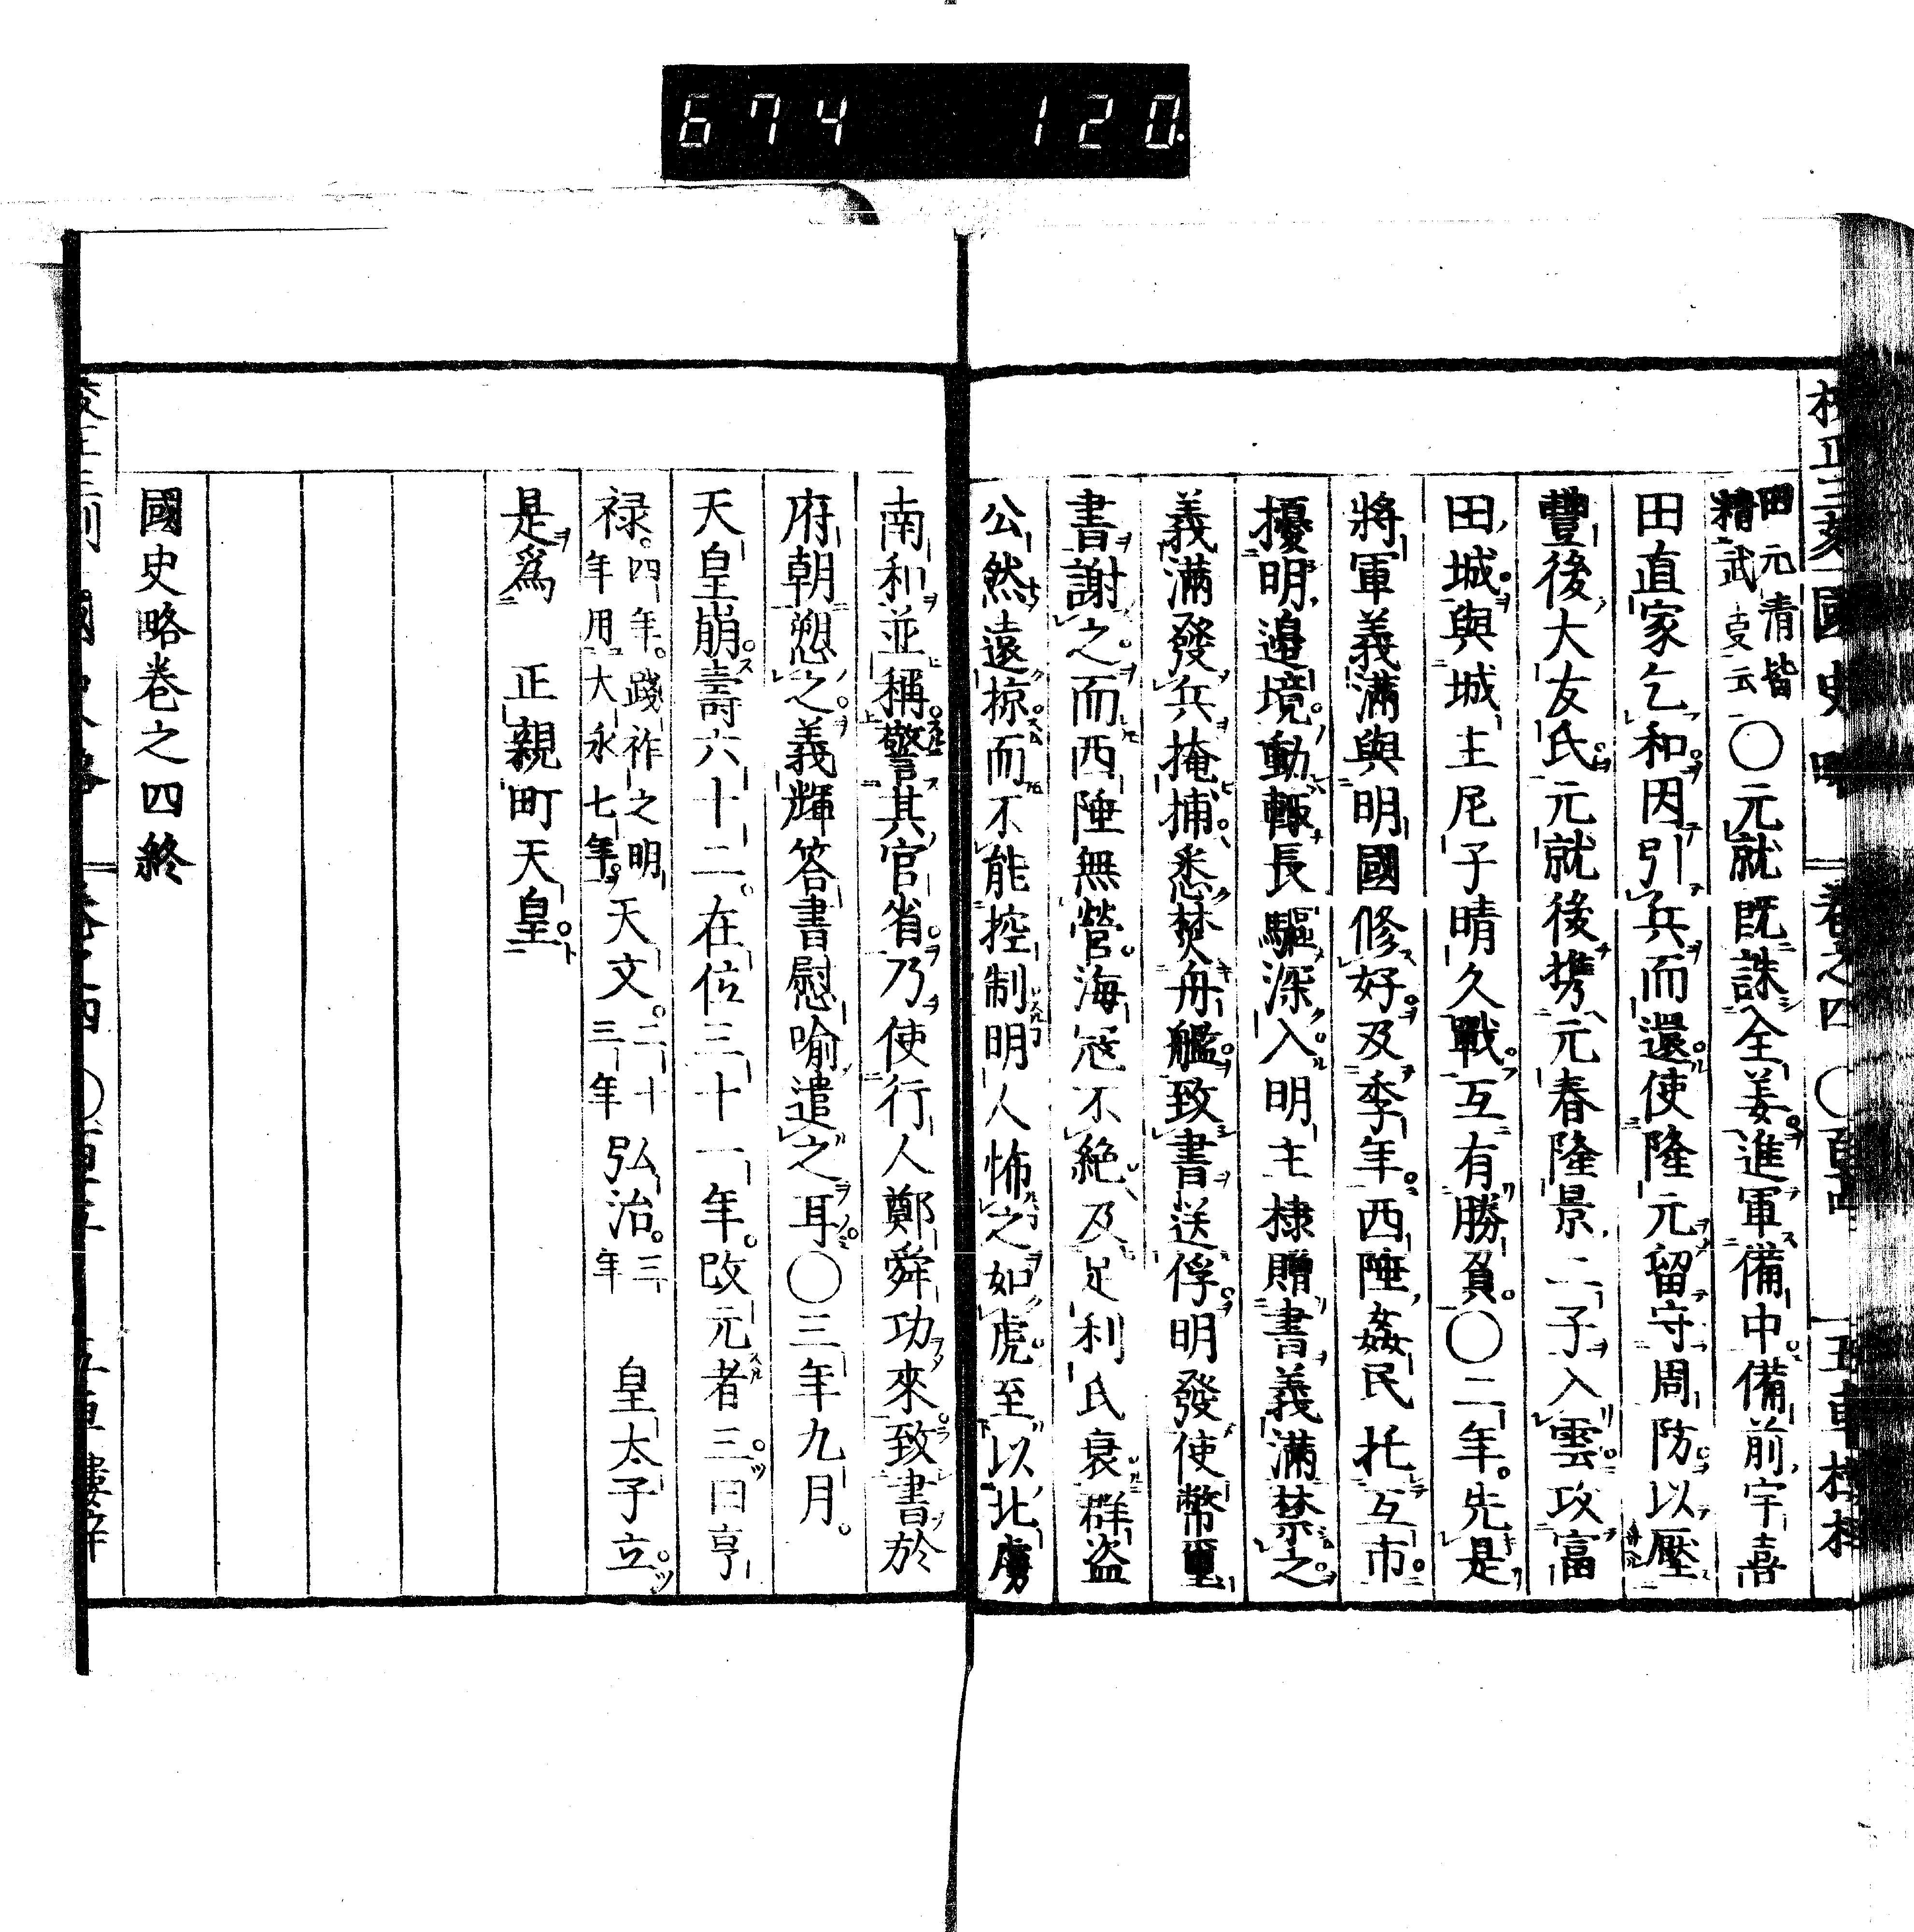 674 120
田元清皆精武㕝云〇元就既誅全姜進軍備中備前宇喜
田直家乞和因引兵而還使隆元留守周防以壓
豐後大友氏元就後携元春隆景二子入雲攻富
田城與城主尼子晴久戰互有勝負〇二年先是
將軍義滿與明國修好及季年西陲姦民托互市
擾明邉境動輙長驅深入明主棣贈書義滿禁之
義滿發兵掩捕悉焚舟艦致書送俘明發使幣璽
書謝之而西陲無營海冦不絶及足利氏衰群盗
公然遠掠而不能控制明人怖之如虎至以北虜
南和並稱警其官省乃使行人鄭舜功來致書於
府朝愬之義輝答書慰喻遣之耳〇三年九月
天皇崩壽六十二在位三十一年改元者三曰亨
禄四年踐祚之明年用大永七年天文二十三年弘治三年 皇太子立
是爲 正親町天皇
國史略卷之四終